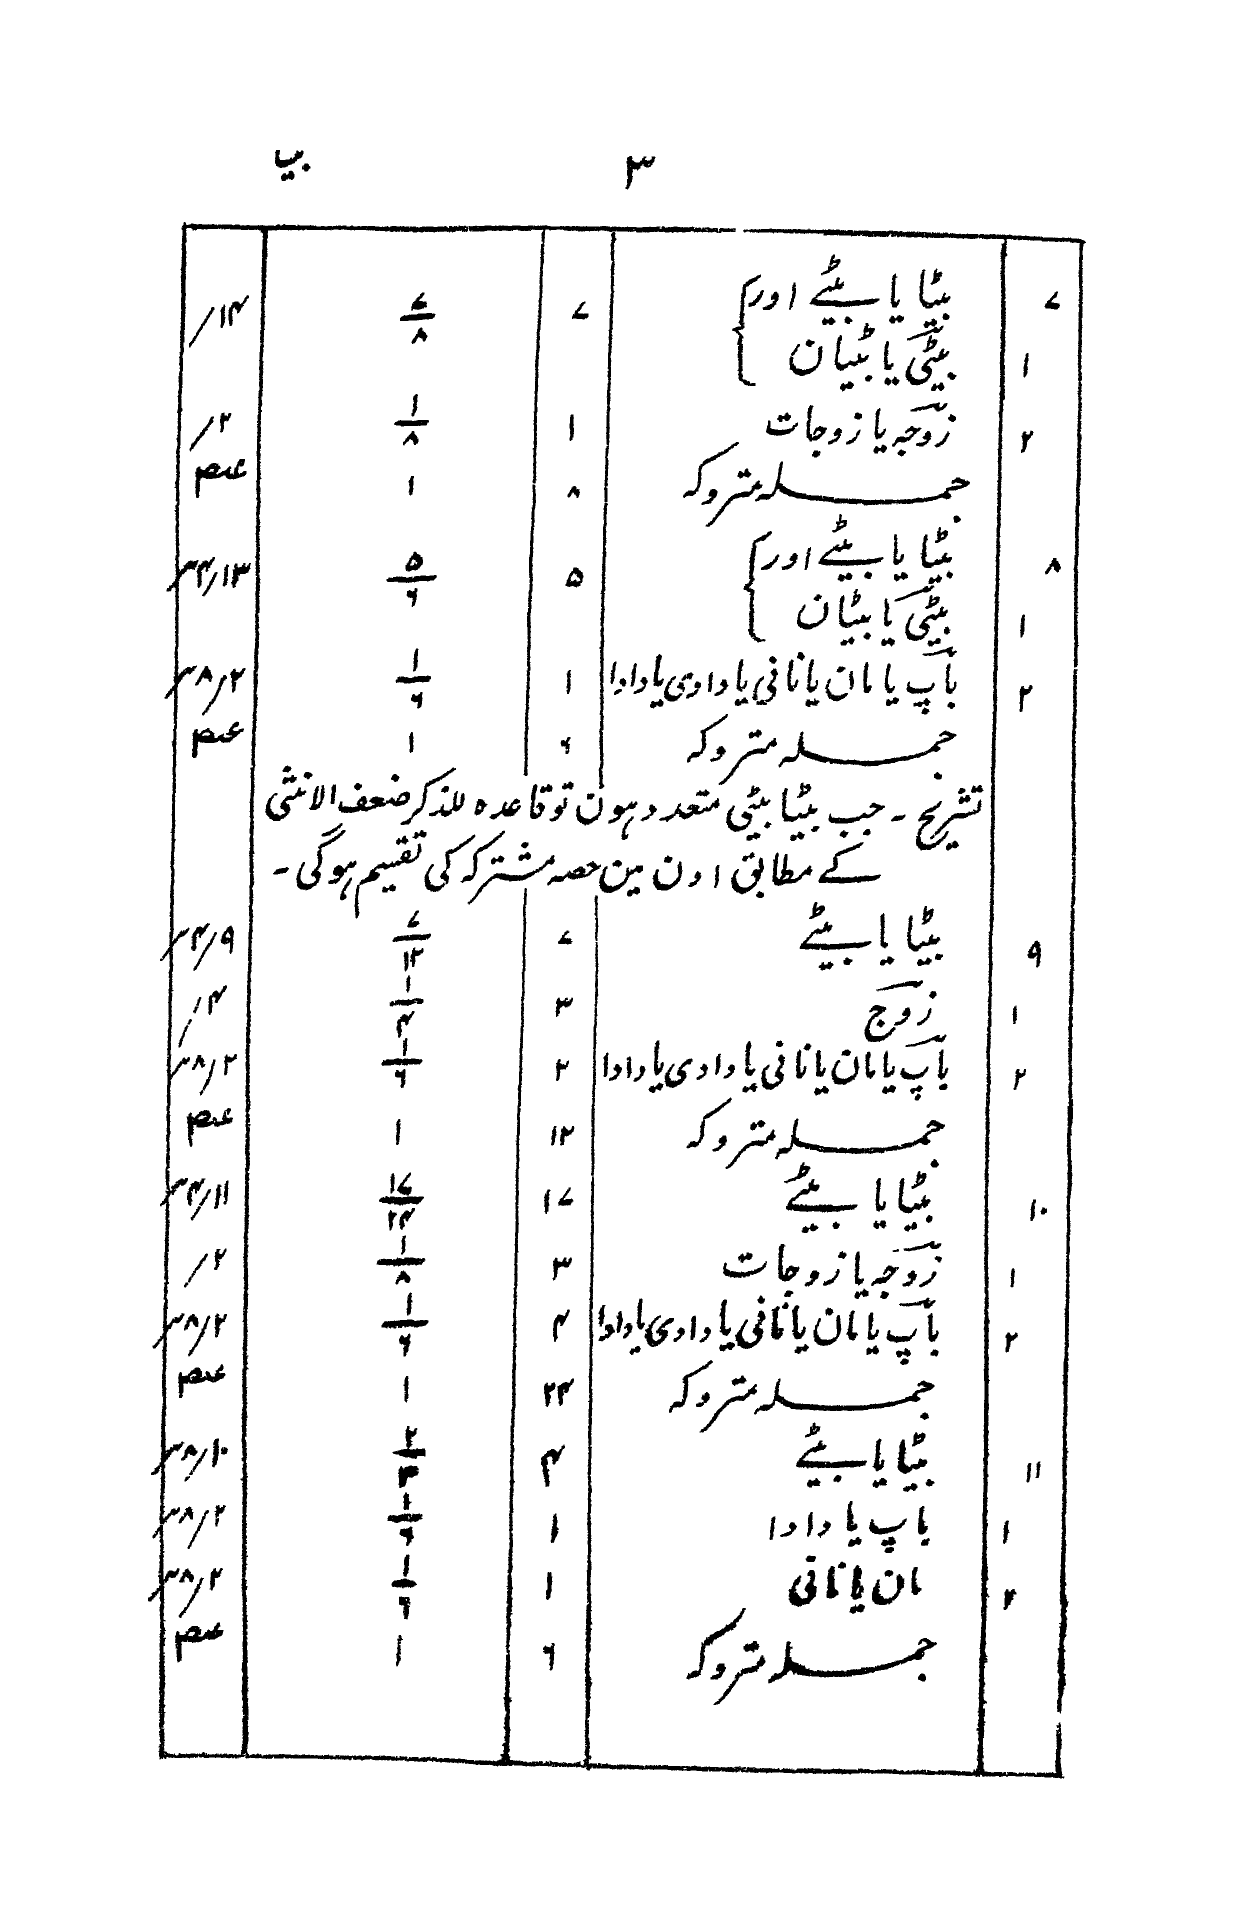 ۳ بیا
۷ بیٹا یا بیٹے اور ۷ ۷/۸ ۱۴/
۱ بیٹی یا بیٹیان
۲ زوجہ یا زوجات ۱ ۱/۸ ۲/
جملہ متروکہ ۸ ۱ عہ
۸ بیٹا یا بیٹے اور ۵ ۵/۶ ۱۳/۴
۱ بیٹی یا بیٹیان
۲ باپ یا مان یا نانی یا دادی یا دادا ۱ ۱/۶ ۲/۸
جملہ متروکہ ۶ ۱ عہ
تشریح ۔ جب بیٹا بیٹی متعدد ہون تو قاعدہ للذکر ضعف الانثی
کے مطابق اون مین حصہ مشترکہ کی تقسیم ہوگی ۔
۹ بیٹا یا بیٹے ۷ ۷/۱۲ ۹/۴
۱ زوج ۳ ۱/۴ ۴/
۲ باپ یا مان یا نانی یا دادی یا دادا ۲ ۱/۶ ۲/۸
جملہ متروکہ ۱۲ ۱ عہ
۱۰ بیٹا یا بیٹے ۱۷ ۱۷/۲۴ ۱۱/۴
۱ زوجہ یا زوجات ۳ ۱/۸ ۲/
۲ باپ یا مان یا نانی یا دادی یا دادا ۴ ۱/۶ ۲/۸
جملہ متروکہ ۲۴ ۱ عہ
۱۱ بیٹا یا بیٹے ۴ ۲/۳ ۱۰/۸
۱ باپ یا دادا ۱ ۱/۶ ۲/۸
۲ مان یا نانی ۱ ۱/۶ ۲/۸
جملہ متروکہ ۶ ۱ عہ